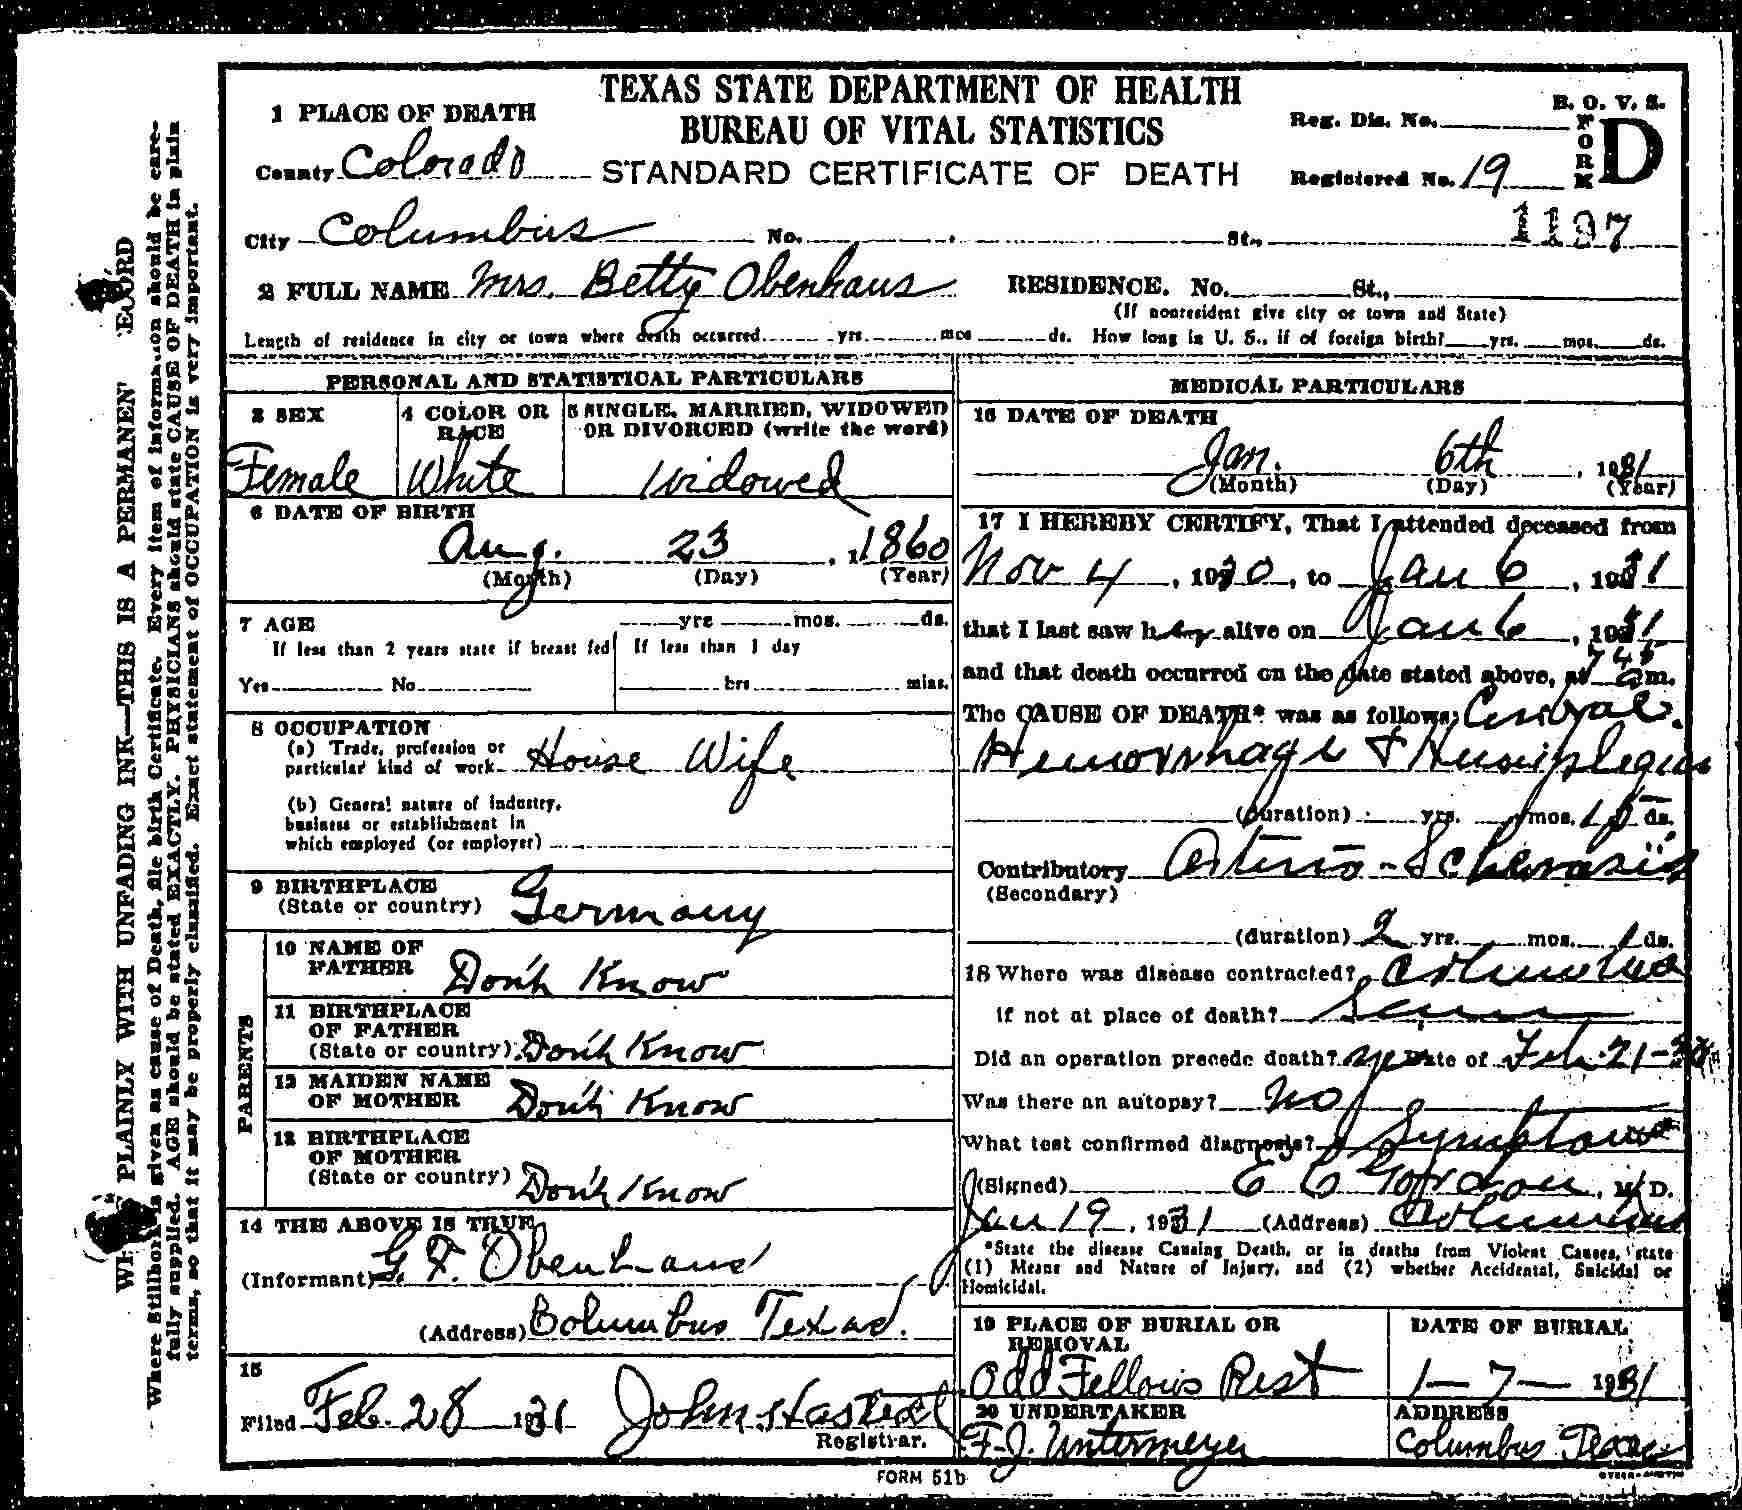 TEXAS STATE DEPARTMENT OF HEALTH
BUREAU OF VITAL STATISTICS
STANDARD CERTIFICATE OF DEATH
B. O. V. S.
FORM D
Reg. Dis. No.
Registered No. 19
1197
1 PLACE OF DEATH
County Colorado
City Columbus No. St.,
2 FULL NAME Mrs. Betty Obenhaus RESIDENCE. No. St.,
(If nonresident give city or town and State)
Length of residence in city or town where death occurred yrs. mos ds. How long in U. S., if of foreign birth? yrs. mos. ds.
PERSONAL AND STATISTICAL PARTICULARS
3 SEX
Female
4 COLOR OR RACE
White
5 SINGLE, MARRIED, WIDOWED
OR DIVORCED (write the word)
Widowed
6 DATE OF BIRTH
Aug. 23, 1860
(Month) (Day) (Year)
7 AGE yrs mos. ds.
If less than 2 years state if breast fed
Yes No
If less than 1 day
hrs mins.
8 OCCUPATION
(a) Trade, profession or
particular kind of work House Wife
(b) General nature of industry,
business or establishment in
which employed (or employer)
9 BIRTHPLACE
(State or country) Germany
PARENTS
10 NAME OF
FATHER Don't Know
11 BIRTHPLACE
OF FATHER
(State or country) Don't Know
12 MAIDEN NAME
OF MOTHER Don't Know
13 BIRTHPLACE
OF MOTHER
(State or country) Don't Know
14 THE ABOVE IS TRUE
(Informant) G. F. Obenhaus
(Address) Columbus Texas.
15
Filed Feb. 28 1931 John Hastedt
Registrar.
MEDICAL PARTICULARS
16 DATE OF DEATH
Jan. 6th, 1931
(Month) (Day) (Year)
17 I HEREBY CERTIFY, That I attended deceased from
Nov 4, 1930, to Jan 6, 1931
that I last saw her alive on Jan 6, 1931
and that death occurred on the date stated above, at 7 45 a m.
The CAUSE OF DEATH* was as follows:
Hemorrhage & Hemiplegia
(duration) yrs. mos. 15 ds.
Contributory
(Secondary)
(duration) 2 yrs. mos. ds.
18 Where was disease contracted? Columbus
if not at place of death?
Did an operation precede death? yes Date of Feb. 21-30
Was there an autopsy? No
What test confirmed diagnosis? Symptoms
(Signed) E C Gordon, M. D.
Jan 19, 1931 (Address) Columbus
*State the disease Causing Death, or in deaths from Violent Causes, state
(1) Means and Nature of Injury, and (2) whether Accidental, Suicidal or
Homicidal.
19 PLACE OF BURIAL OR
REMOVAL
Odd Fellows Rest
DATE OF BURIAL
1-7- 1931
20 UNDERTAKER
F. J. Untermeyer
ADDRESS
Columbus Texas
FORM 51b
PLAINLY WITH UNFADING INK—THIS IS A PERMANENT RECORD
Where Stillborn is given as cause of Death, file birth Certificate. Every item of information should be care-
fully supplied. AGE should be stated EXACTLY. PHYSICIANS should state CAUSE OF DEATH in plain
terms, so that it may be properly classified. Exact statement of OCCUPATION is very important.